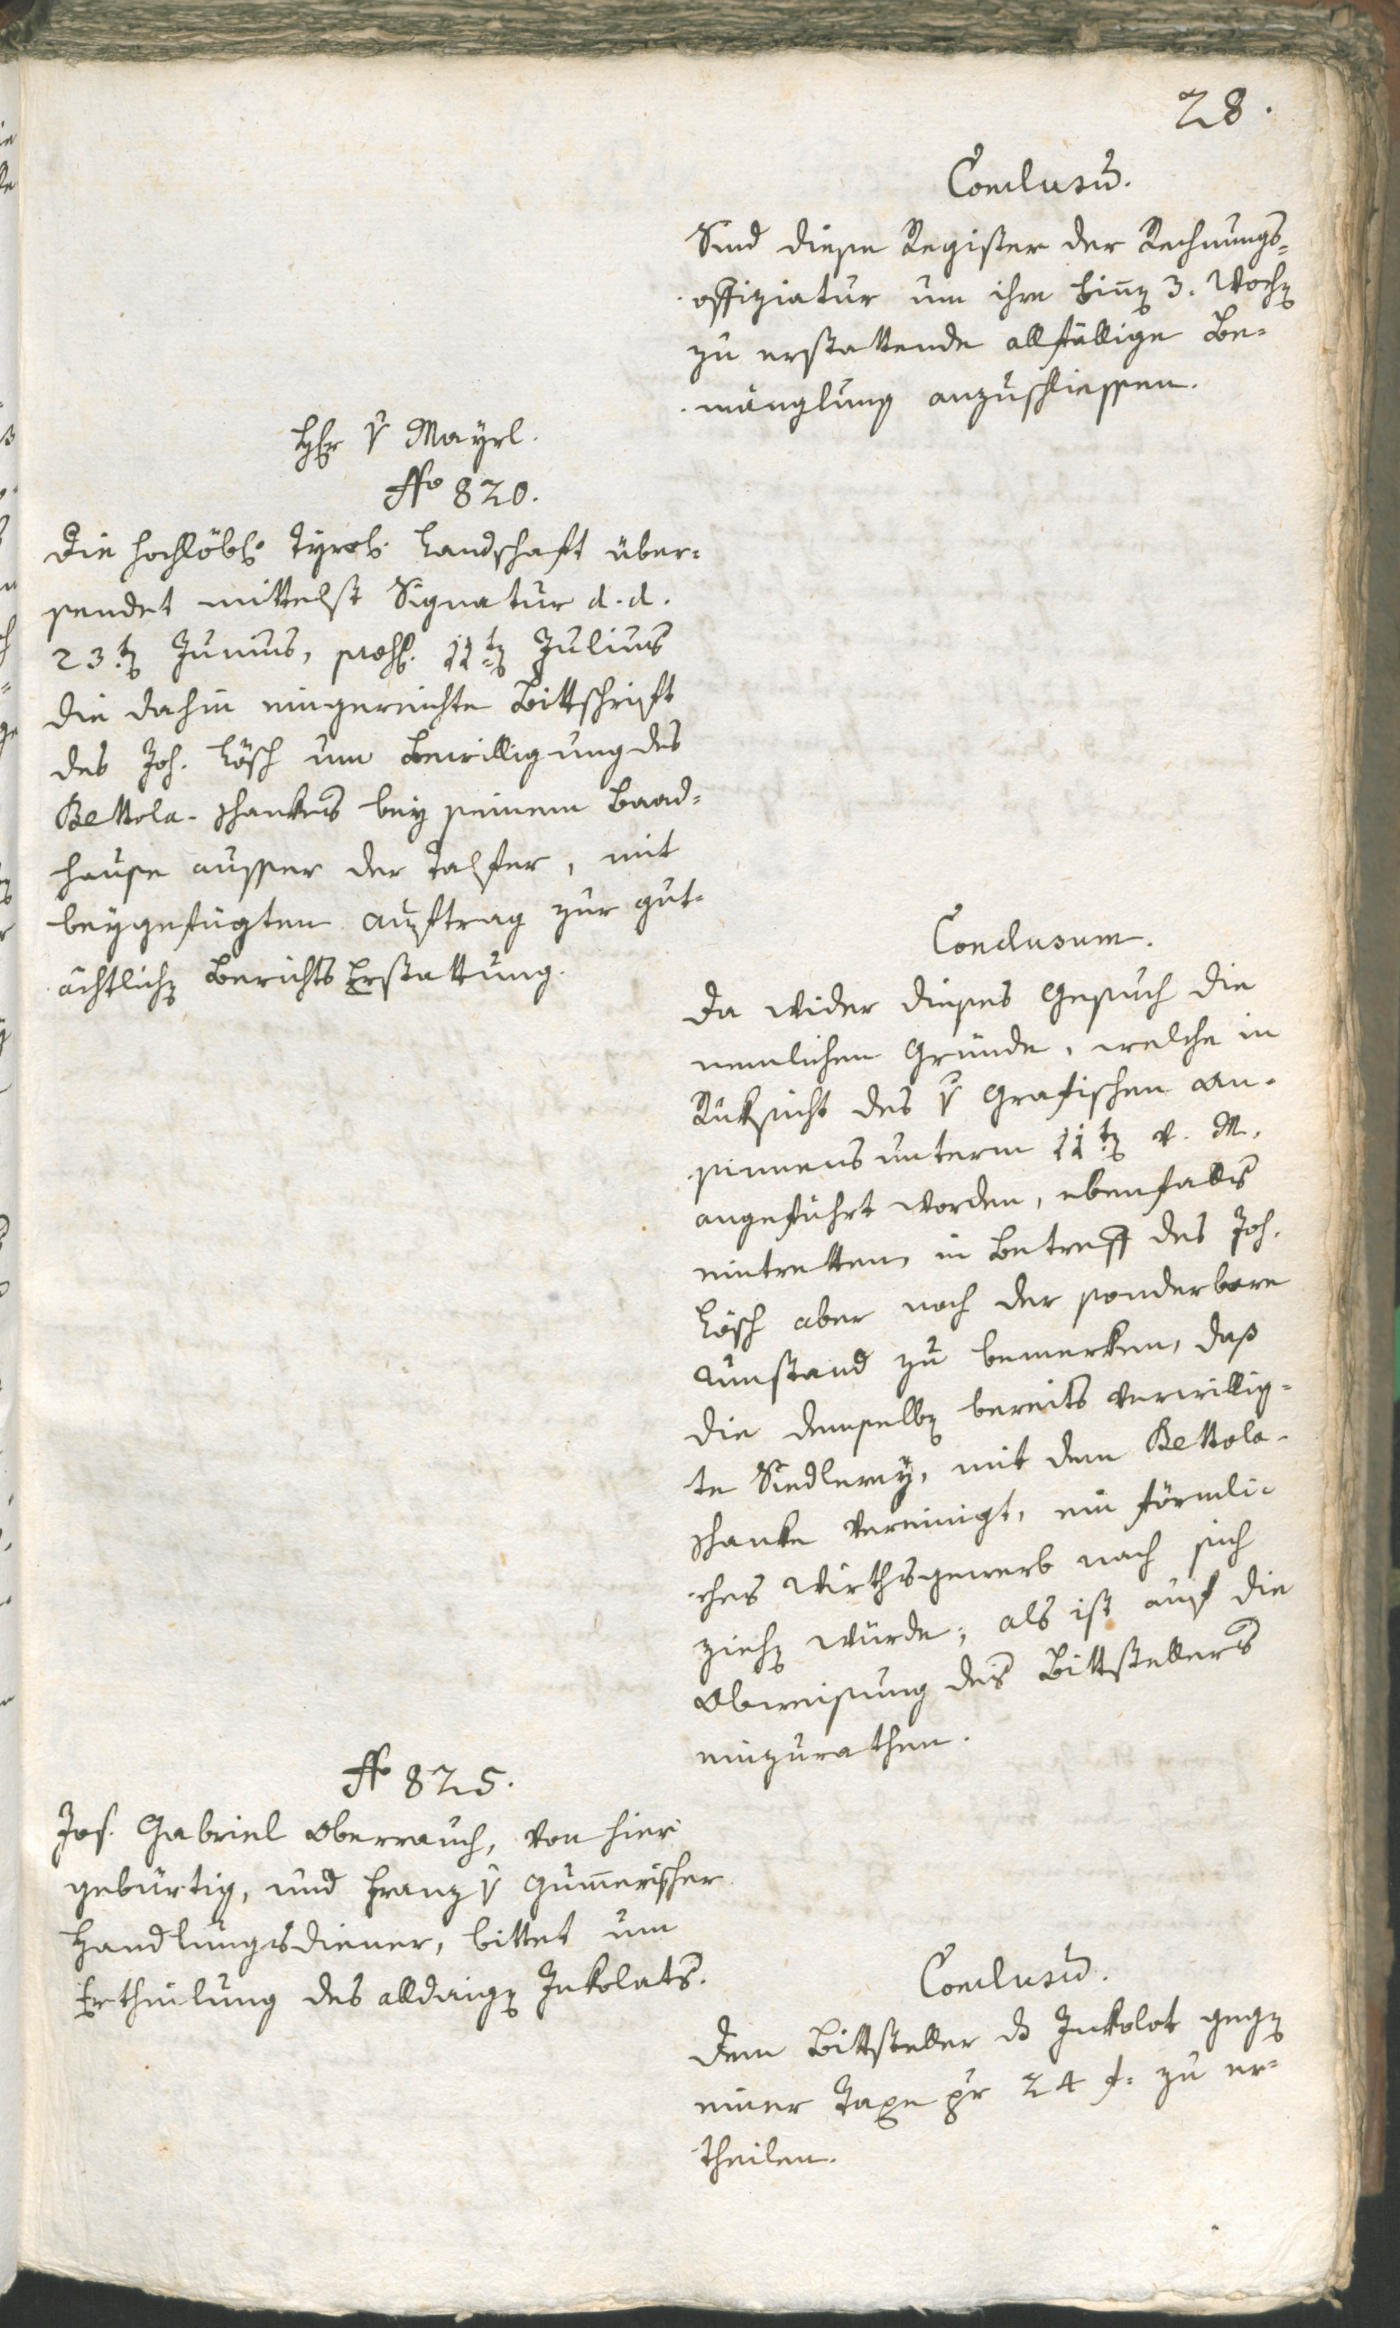 28.
Conclusum.
Sind diese Register der Rechnungs=
offiziatur um ihre binnen 3. Wochen
zu erstattende allfällige Be=
mänglung anzuschliessen.
Herr v Mayrl.
No 820.
Die hochlöbl. Tyrol. Landschaft über=
sendet mittelst Signatur d. d.
23ten Junius, 11ten Julius
die dahin eingereichte Bittschrift
des Joh. Lösch um Bewilligung des
Bettola-schankes bey seinem Baad=
hause ausser der Talfer, mit
beygefügten Auftrag zur gut=
ächtlichen Berichts Erstattung.
Conclusum.
Da wider dieses Gesuch die
nemlichen Gründe, welche in
Rüksicht des v Grafischen An=
sinnens unterm 11ten v. M.
angeführt worden, ebenfalls
eintretten, in Betreff des Joh.
Lösch aber noch der sonderbare
Umstand zu bemerken, daß
die demselben bereits verwillig=
te Siedlerey, mit dem Bettola-
schanke vereinigt, ein förmli=
ches Wirthsgewerb nach sich
ziehen würde; als ist auf die
Abweisung des Bittstellers
einzurathen.
No 825.
Jos. Gabriel Oberrauch, von hier
gebürtig, und Franz v Gummerischer
Handlungsdiener, bittet um
Ertheilung des alldaigen Inkolats.
Conclusum.
Dem Bittsteller das Inkolat gegen
einer Taxe pr 24 f. zu er=
theilen.